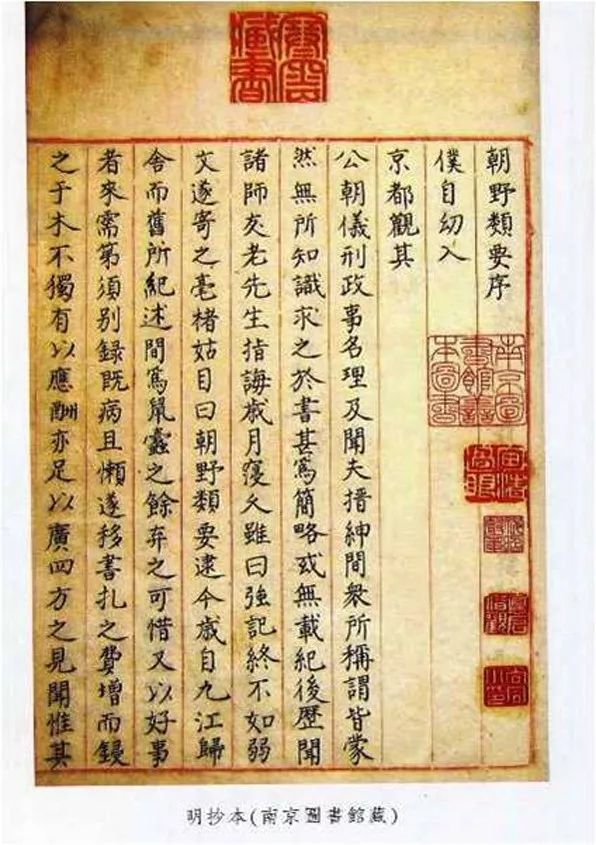 朝野類要序
僕自幼入
京都觀其
公朝儀刑政事名理及聞夫搢紳間衆所稱謂皆蒙
然無所知識求之於書甚爲簡略或無載紀後歷聞
諸師友老先生指誨歲月寖久雖曰強記終不如弱
文遂寄之毫楮姑目曰朝野類要逮今歲自九江歸
舍而舊所紀述間爲鼠蠹之餘弃之可惜又以好事
者來需第須别録既病且懶遂移書扎之費增而鋟
之于木不獨有以應酬亦足以廣四方之見聞惟其
南京圖
書館善
本圖書
明抄本(南京圖書館藏)